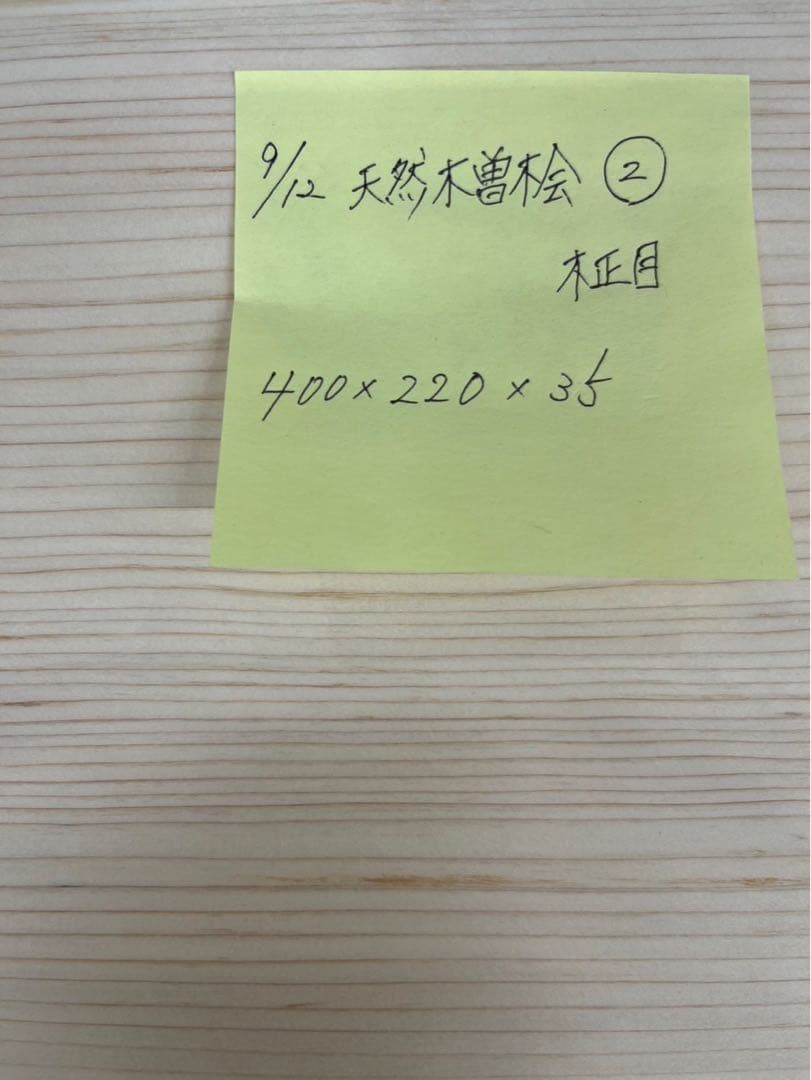 9/12 天然木曽桧 ②
柾目
400×220×35